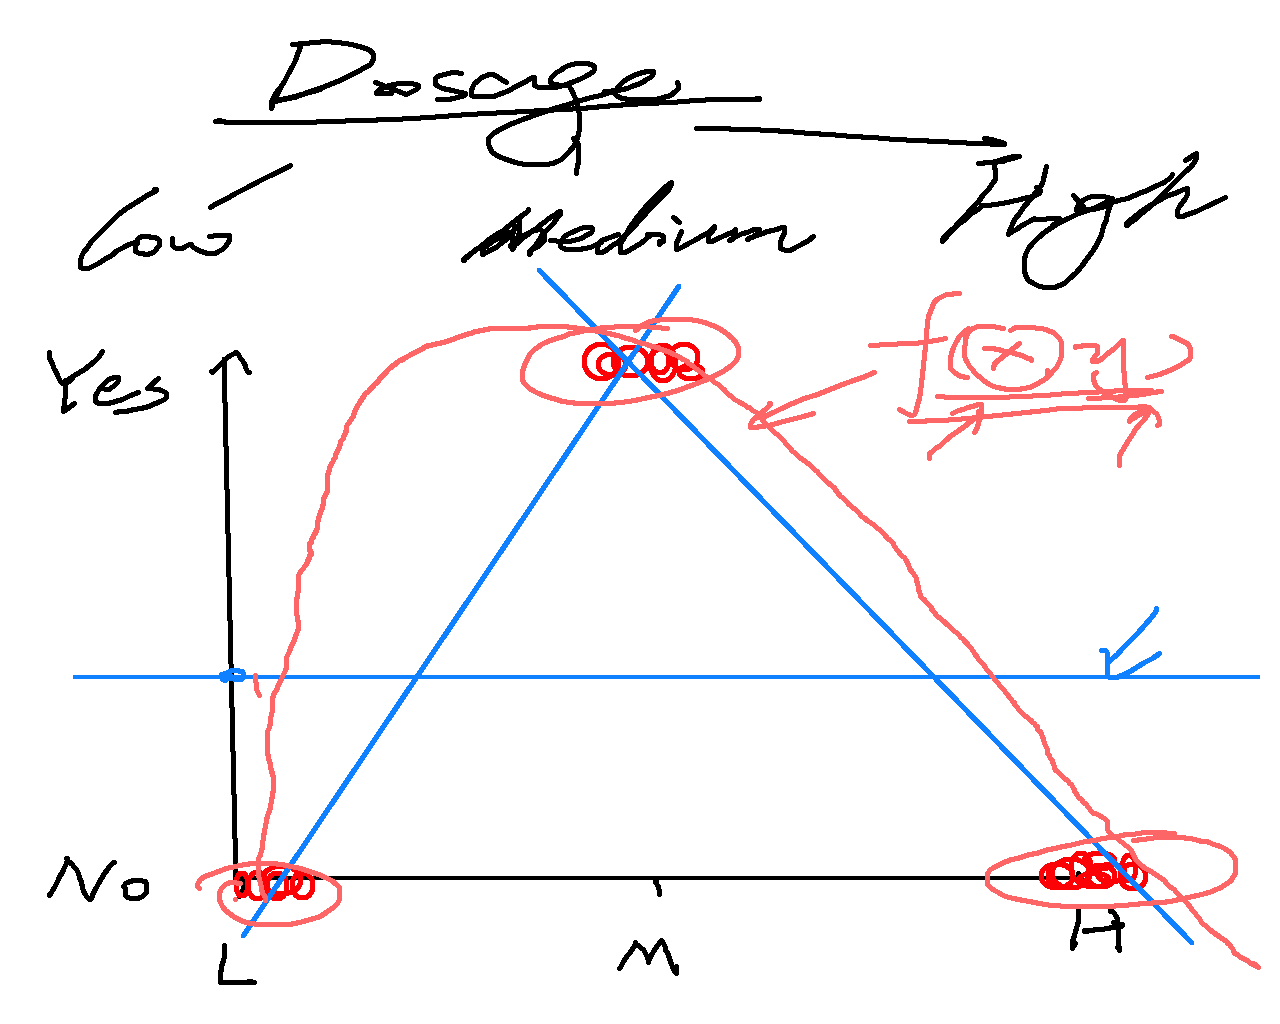 Dosage
Low Medium High
Yes
f(x, y)
No
L M H